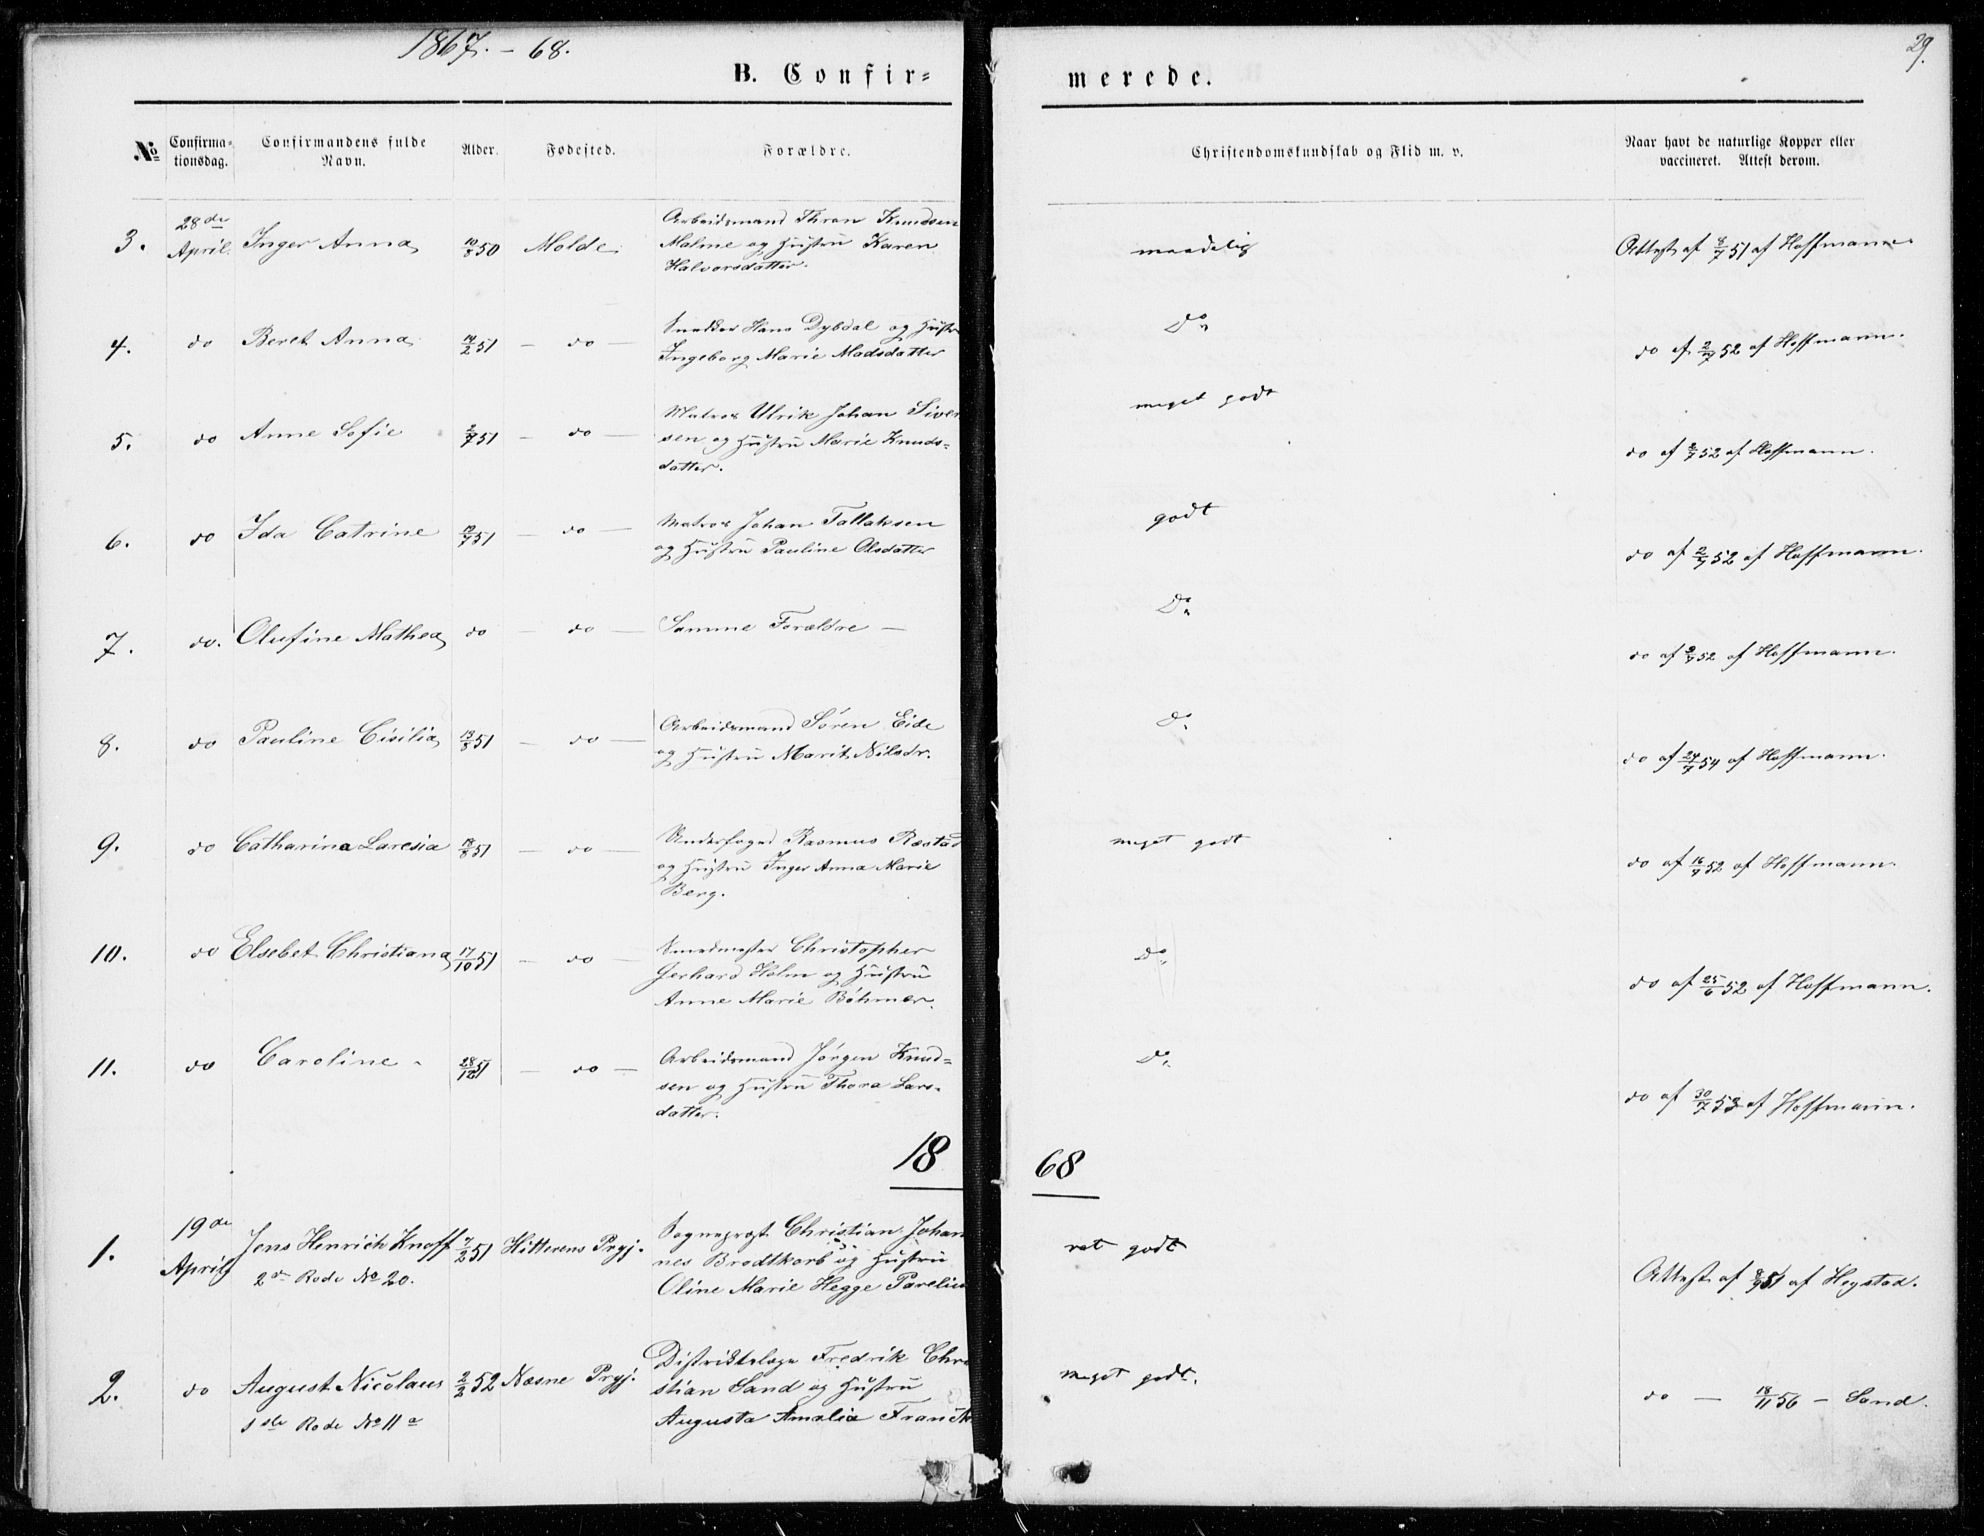 1867. - 68.
29.
B. Confir=
merede.
No
Confirma=
tionsdag.
Confirmandens fulde
Navn.
Alder.
Fødested.
Forældre.
Christendomskundskab og Flid m. v.
Naar havt de naturlige Kopper eller
vaccineret. Attest derom.
3. 28de April. Inger Anna 10/8 50 Molde
Arbeidsmand Thron Knudsen
Malme og Hustru Karen
Halvorsdatter.
maadelig
Attest af 8/7 51 af Hoffmann.
4. do Beret Anna 14/2 51 - do -
Snedker Hans Dybdal og Hustru
Ingeborg Marie Madsdatter
Do
do af 2/7 52 af Hoffmann.
5. do Anne Sofie 2/7 51 - do -
Matros Ulrik Johan Siver
sen og Hustru Marie Knuds=
datter.
meget godt
do af 2/7 52 af Hoffmann.
6. do Ida Catrine 12/7 51 - do -
Matros Johan Tallaksen
og Hustru Pauline Olsdatter
godt
do af 2/7 52 af Hoffmann.
7. do. Olufine Mathea do - do -
Samme Forældre -
Do
do af 2/7 52 af Hoffmann.
8. do Pauline Cisilia 13/8 51 - do -
Arbeidsmand Søren Eide
og Hustru Marit Nilsdr.
Do
do af 24/7 54 af Hoffmann.
9. do Catharina Laresia 18/8 51 - do -
Underfoged Rasmus Røstad
og Hustru Inger Anna Marie
Berg.
meget godt
do af 16/7 52 af Hoffmann.
10. do Elsebet Christiana 17/10 51 - do -
Smedmester Christopher
Gerhard Holm og Hustru
Anne Marie Bøhmer.
Do
do af 25/6 52 af Hoffmann.
11. do Caroline 28/12 51 - do -
Arbeidsmand Jørgen Knud=
sen og Hustru Thora Lars=
datter.
Do
do af 30/7 53 af Hoffmann.
18 68
1. 19de April Jens Henrich Knoff 7/2 51 Hitterens Prgj.
2de Rode No 20.
Sogneprest Christian Johan
nes Brodtkorb og Hustru
Oline Marie Hegge Parelius
ret godt
Attest af 8/9 51 af Heystad.
2. do August Nicolaus 2/2 52 Næsne Prgj.
1ste Rode No 11a
Distriktslæge Fredrik Chri
stian Sand og Hustru
Augusta Amalia Franck
meget godt.
do - 18/11 56 - Sand.